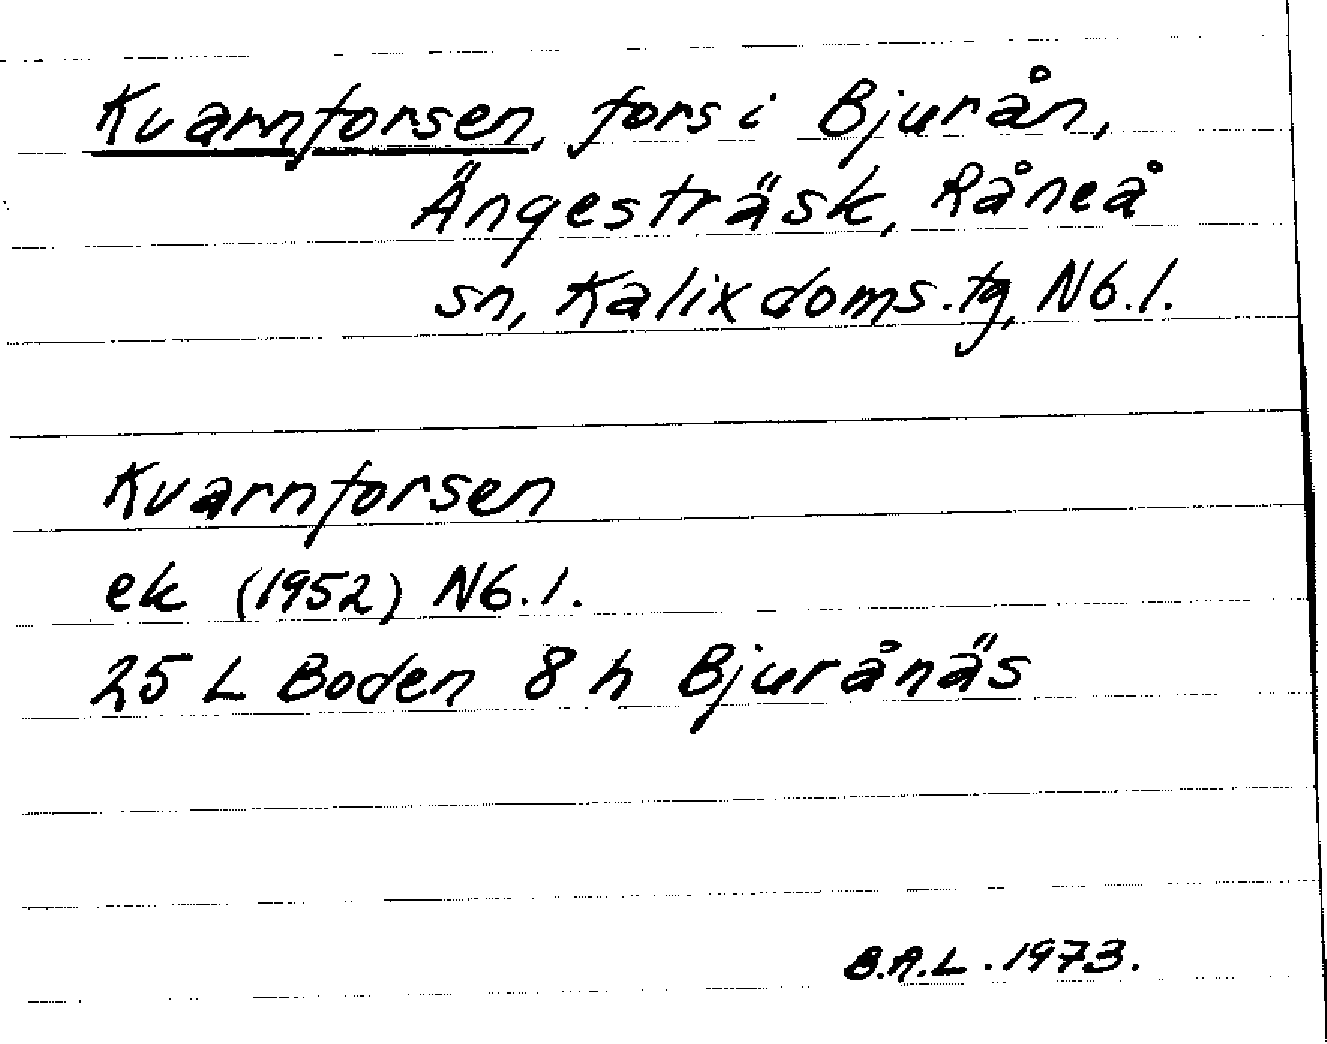 Kvarnforsen, fors i Bjurån,
Ängesträsk, Råneå
sn, Kalix doms.tg, Nb.l.
Kvarnforsen
ek (1952) Nb.l.
25 L Boden 8 h Bjurånäs
B.A.L. 1973.